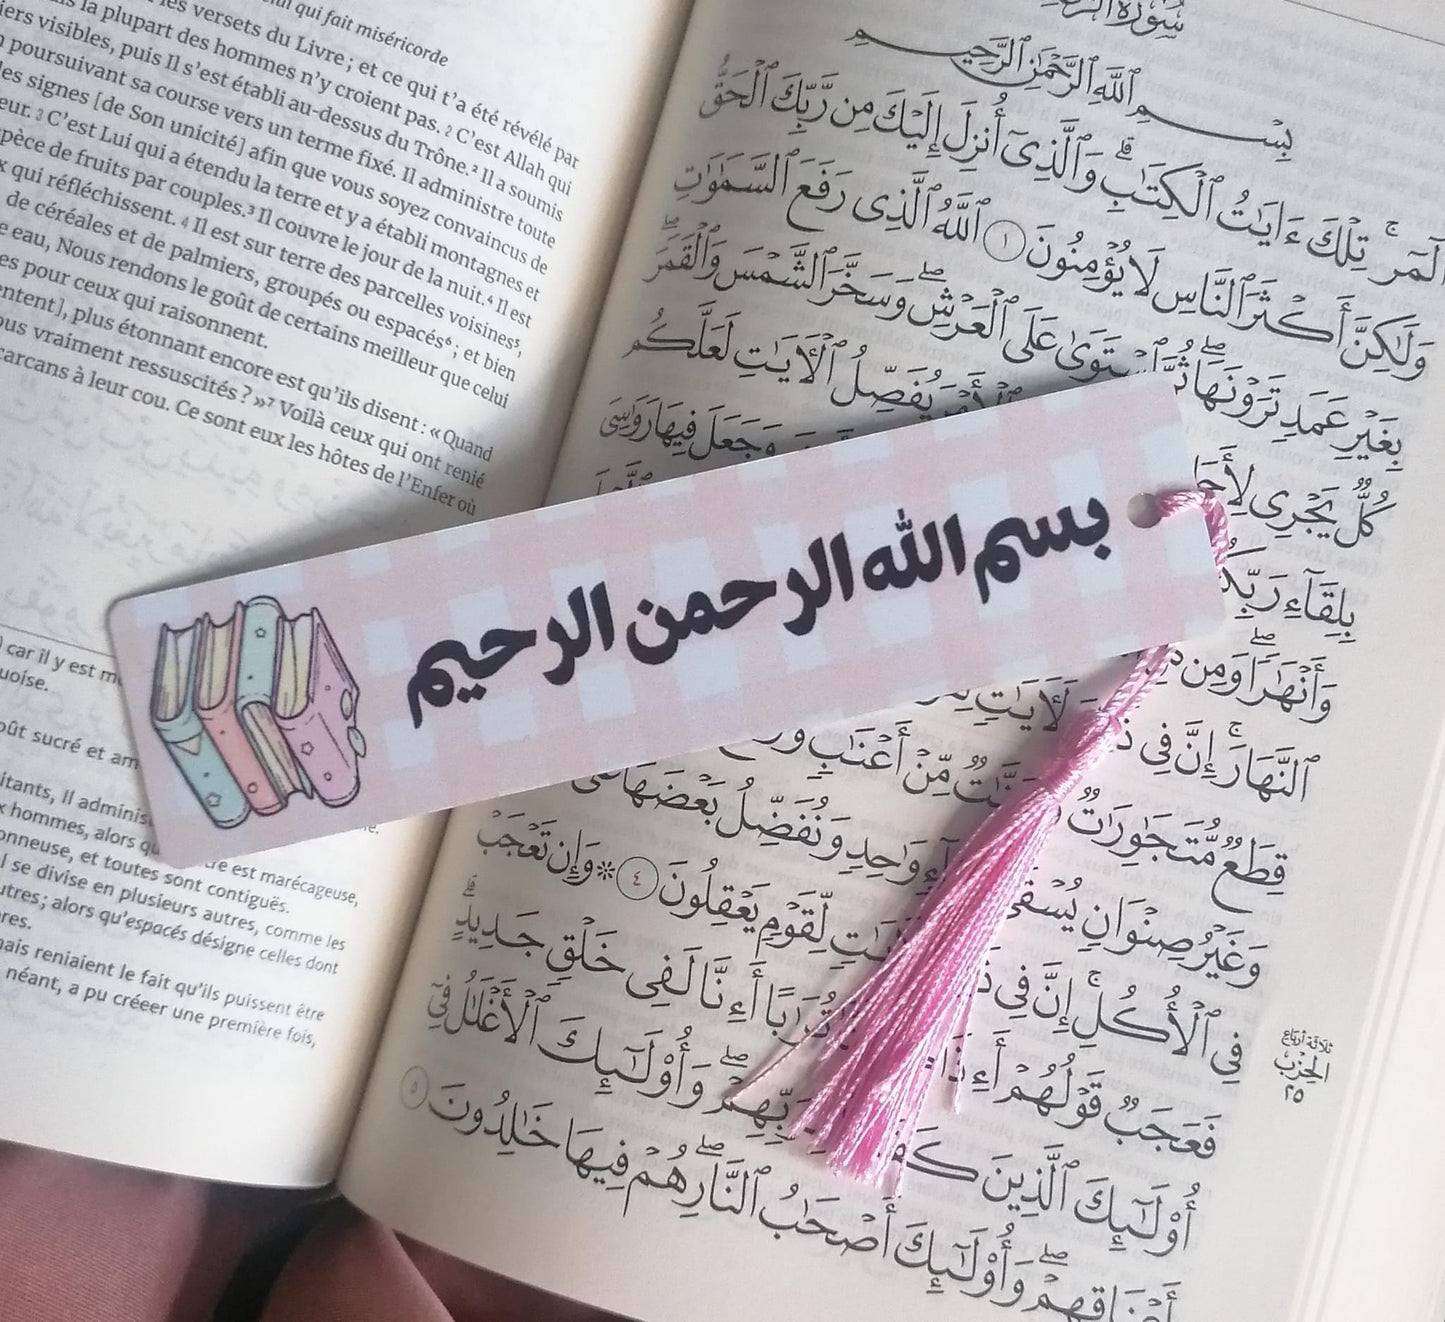 بسم الله الرحمن الرحيم
celui qui fait miséricorde
les versets du Livre ; et ce qui t’a été révélé par
la plupart des hommes n’y croient pas. 2 C’est Allah qui
visibles, puis Il s’est établi au-dessus du Trône.² Il a soumis
poursuivant sa course vers un terme fixé. Il administre toute
les signes [de Son unicité] afin que vous soyez convaincus de
3 C’est Lui qui a étendu la terre et y a établi montagnes et
de fruits par couples.³ Il couvre le jour de la nuit.⁴ Il est
qui réfléchissent. 4 Il est sur terre des parcelles voisines⁵,
de céréales et de palmiers, groupés ou espacés⁶ ; et bien
eau, Nous rendons le goût de certains meilleur que celui
pour ceux qui raisonnent.
plus étonnant encore est qu’ils disent : « Quand
vraiment ressuscités ? »⁷ Voilà ceux qui ont renié
carcans à leur cou. Ce sont eux les hôtes de l’Enfer où
car il y est
sucré et
Il
hommes, alors
est marécageuse,
et toutes sont contiguës.
se divise en plusieurs autres, comme les
alors qu’espacés désigne celles dont
reniaient le fait qu’ils puissent être
néant, a pu créeer une première fois,
بِسْمِ ٱللَّهِ ٱلرَّحْمَٰنِ ٱلرَّحِيمِ
الٓمٓر ۚ تِلْكَ ءَايَٰتُ ٱلْكِتَٰبِ ۗ وَٱلَّذِىٓ أُنزِلَ إِلَيْكَ مِن رَّبِّكَ ٱلْحَقُّ
وَلَٰكِنَّ أَكْثَرَ ٱلنَّاسِ لَا يُؤْمِنُونَ ١ ٱللَّهُ ٱلَّذِى رَفَعَ ٱلسَّمَٰوَٰتِ
بِغَيْرِ عَمَدٍ تَرَوْنَهَا ۖ ثُمَّ ٱسْتَوَىٰ عَلَى ٱلْعَرْشِ ۖ وَسَخَّرَ ٱلشَّمْسَ وَٱلْقَمَرَ ۖ
كُلٌّ يَجْرِى يُفَصِّلُ ٱلْءَايَٰتِ لَعَلَّكُم
بِلِقَآءِ وَجَعَلَ فِيهَا رَوَٰسِىَ
وَأَنْهَٰرًا ۖ وَمِن
ٱلنَّهَارَ ۚ إِنَّ فِى
قِطَعٌ مُّتَجَٰوِرَٰتٌ مِّنْ أَعْنَٰبٍ
وَغَيْرُ صِنْوَانٍ يُسْقَىٰ وَٰحِدٍ وَنُفَضِّلُ بَعْضَهَا
فِى ٱلْأُكُلِ ۚ إِنَّ فِى لِّقَوْمٍ يَعْقِلُونَ ٤ ۞ وَإِن تَعْجَبْ
فَعَجَبٌ قَوْلُهُمْ أَءِذَا تُرَٰبًا أَءِنَّا لَفِى خَلْقٍ جَدِيدٍ ۗ
أُو۟لَٰٓئِكَ ٱلَّذِينَ ۖ وَأُو۟لَٰٓئِكَ ٱلْأَغْلَٰلُ فِىٓ
أَعْنَاقِهِمْ ۖ وَأُو۟لَٰٓئِكَ أَصْحَٰبُ ٱلنَّارِ ۖ هُمْ فِيهَا خَٰلِدُونَ ٥
ثلاثة أرباع
الحزب
٢٥